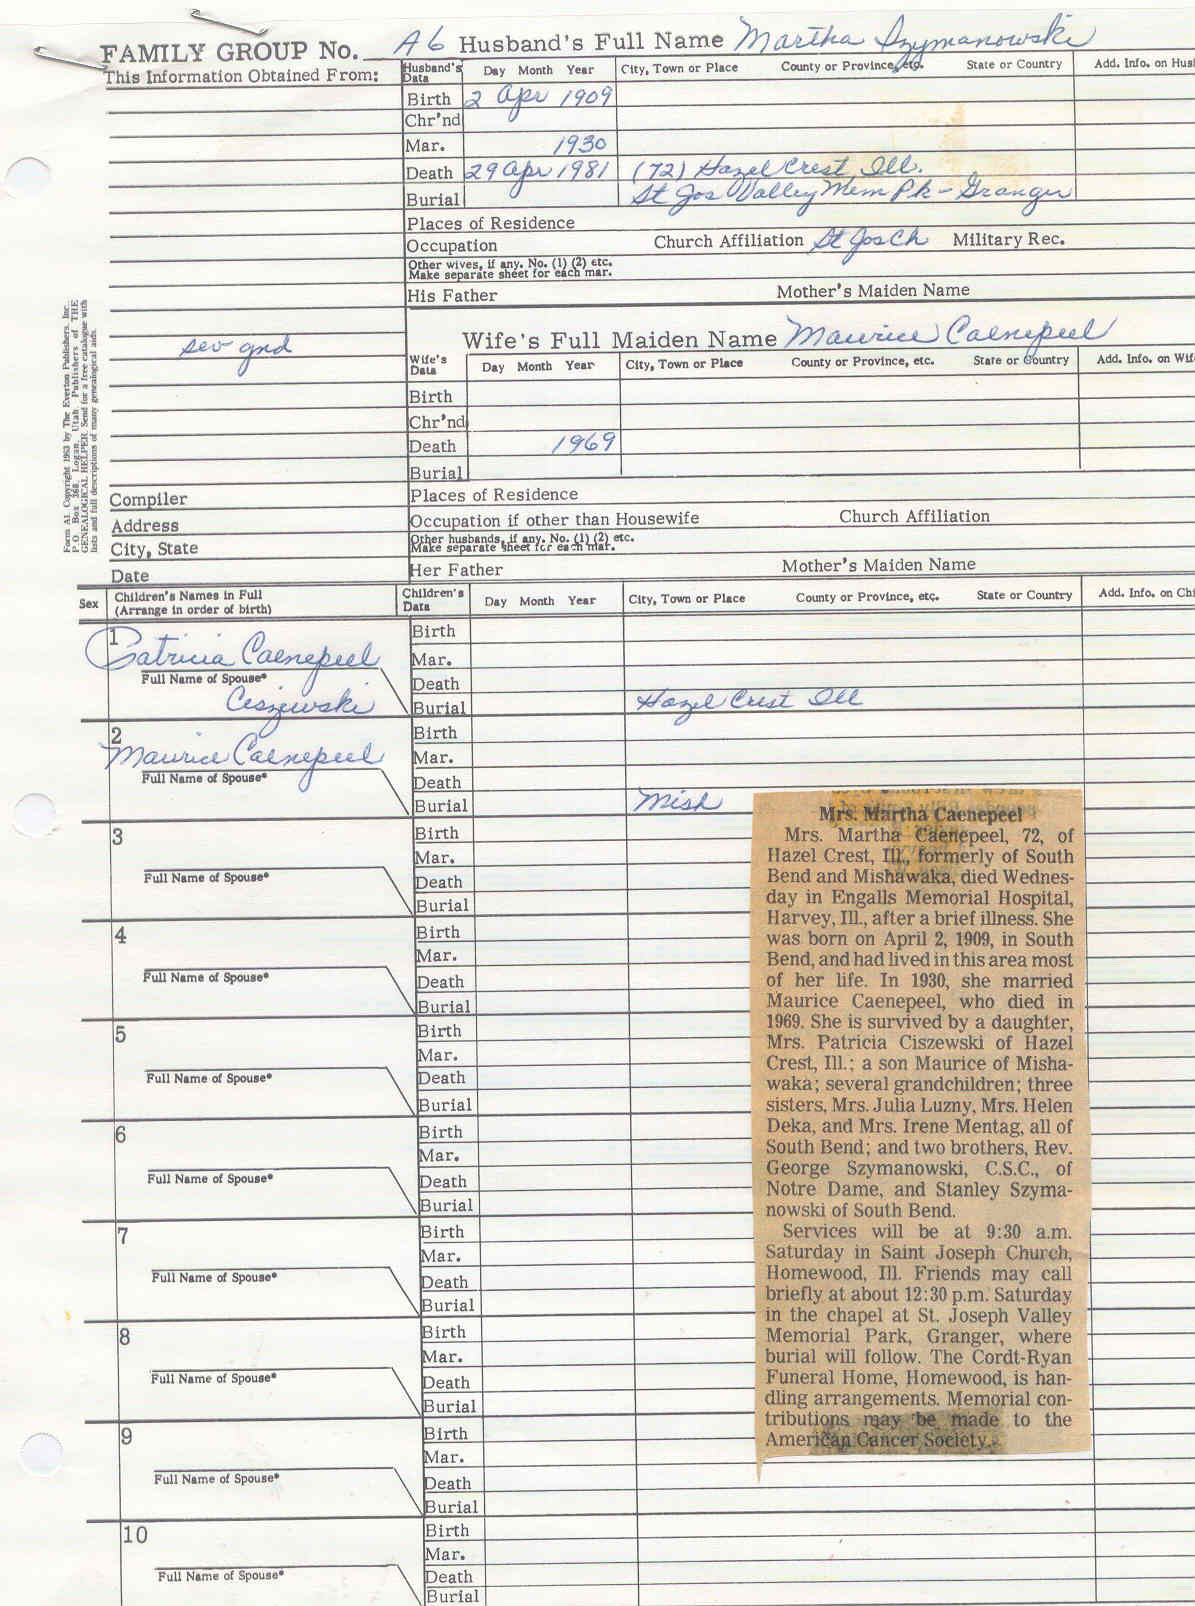 FAMILY GROUP No. A6 Husband's Full Name Martha Szymanowski
This Information Obtained From:
Husband's Data Day Month Year City, Town or Place County or Province, etc. State or Country Add. Info. on Hus
Birth 2 Apr 1909
Chr'nd
Mar. 1930
Death 29 Apr 1981 (72) Hazel Crest, Ill.
Burial St Jos Valley Mem Pk - Granger
Places of Residence
Occupation Church Affiliation St Jos Ch Military Rec.
Other wives, if any. No. (1) (2) etc.
Make separate sheet for each mar.
His Father Mother's Maiden Name
sev gnd
Wife's Full Maiden Name Maurice Caenepeel
Wife's Data Day Month Year City, Town or Place County or Province, etc. State or Country Add. Info. on Wif
Birth
Chr'nd
Death 1969
Burial
Compiler Places of Residence
Address Occupation if other than Housewife Church Affiliation
City, State Other husbands, if any. No. (1) (2) etc.
Make separate sheet for each mar.
Date Her Father Mother's Maiden Name
Form A1. Copyright 1963 by The Everton Publishers, Inc.
P.O. Box 368, Logan, Utah. Publishers of THE
GENEALOGICAL HELPER. Send for a free catalogue with
lists and full descriptions of many genealogical aids.
Sex Children's Names in Full
(Arrange in order of birth) Children's Data Day Month Year City, Town or Place County or Province, etc. State or Country Add. Info. on Chi
1 Birth
Patricia Caenepeel Mar.
Full Name of Spouse* Death
Ciszewski Burial Hazel Crest Ill
2 Birth
Maurice Caenepeel Mar.
Full Name of Spouse* Death
Burial Mish
3 Birth
Mar.
Full Name of Spouse* Death
Burial
4 Birth
Mar.
Full Name of Spouse* Death
Burial
5 Birth
Mar.
Full Name of Spouse* Death
Burial
6 Birth
Mar.
Full Name of Spouse* Death
Burial
7 Birth
Mar.
Full Name of Spouse* Death
Burial
8 Birth
Mar.
Full Name of Spouse* Death
Burial
9 Birth
Mar.
Full Name of Spouse* Death
Burial
10 Birth
Mar.
Full Name of Spouse* Death
Burial
Mrs. Martha Caenepeel
Mrs. Martha Caenepeel, 72, of
Hazel Crest, Ill., formerly of South
Bend and Mishawaka, died Wednes-
day in Engalls Memorial Hospital,
Harvey, Ill., after a brief illness. She
was born on April 2, 1909, in South
Bend, and had lived in this area most
of her life. In 1930, she married
Maurice Caenepeel, who died in
1969. She is survived by a daughter,
Mrs. Patricia Ciszewski of Hazel
Crest, Ill.; a son Maurice of Misha-
waka; several grandchildren; three
sisters, Mrs. Julia Luzny, Mrs. Helen
Deka, and Mrs. Irene Mentag, all of
South Bend; and two brothers, Rev.
George Szymanowski, C.S.C., of
Notre Dame, and Stanley Szyma-
nowski of South Bend.
Services will be at 9:30 a.m.
Saturday in Saint Joseph Church,
Homewood, Ill. Friends may call
briefly at about 12:30 p.m. Saturday
in the chapel at St. Joseph Valley
Memorial Park, Granger, where
burial will follow. The Cordt-Ryan
Funeral Home, Homewood, is han-
dling arrangements. Memorial con-
tributions may be made to the
American Cancer Society.